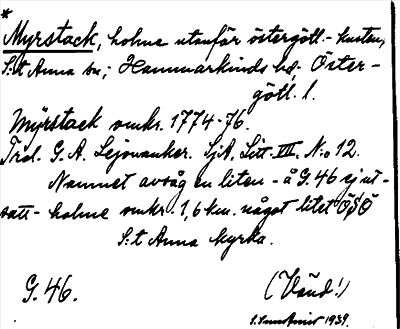 *
Myrstack, holme utanför östergötl.-kusten,
S:t Anna sn; Hammarkinds hd, Öster-
götl. l.
Myrstack omkr. 1774-76.
G. A. Lejonanker. SjA, Litt. VII. N:o 12.
Namnet avsåg en liten - å G. 46 ej ut-
satt - holme omkr. 1,6 km. något litet ÖSÖ
S:t Anna kyrka.
G. 46. (Vänd!)
1939.